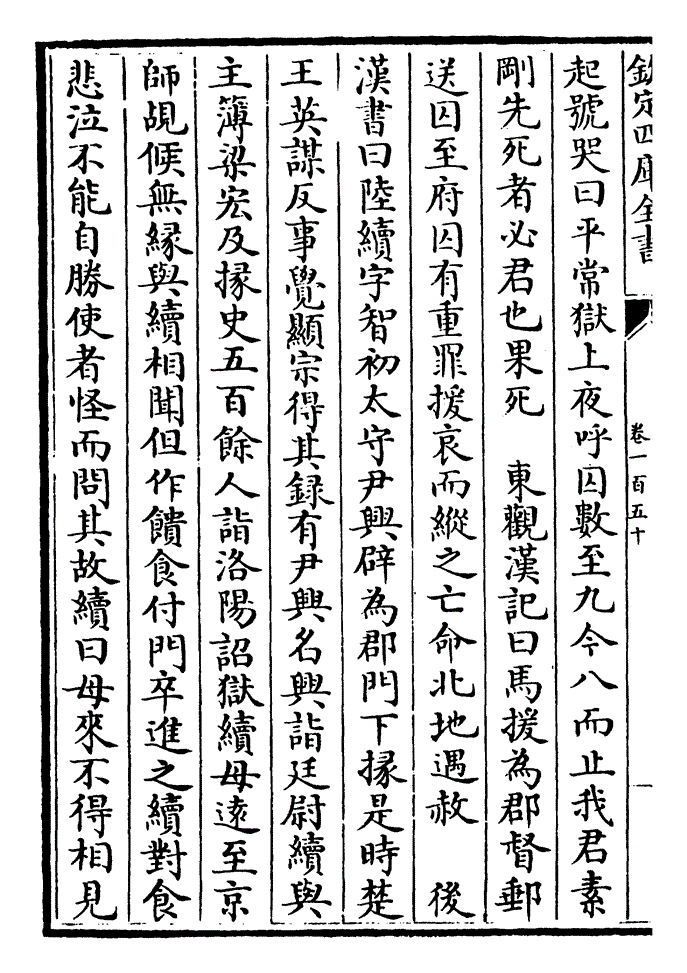 欽定四庫全書
卷一百五十
起號哭曰平常獄上夜呼囚數至九今八而止我君素
剛先死者必君也果死　東觀漢記曰馬援為郡督郵
送囚至府囚有重罪援哀而縱之亡命北地遇赦　後
漢書曰陸續字智初太守尹興辟為郡門下掾是時楚
王英謀反事覺顯宗得其錄有尹興名興詣廷尉續與
主簿梁宏及掾史五百餘人詣洛陽詔獄續母遠至京
師覘候無緣與續相聞但作饋食付門卒進之續對食
悲泣不能自勝使者怪而問其故續曰母來不得相見